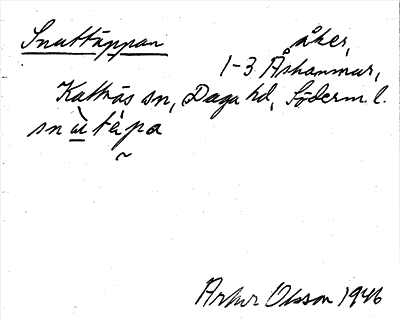 Snuttäppan åker,
1-3 Åshammar,
Kattnäs sn, Daga hd, Söderm. l.
snùtè̀pa
Artur Olsson 1946